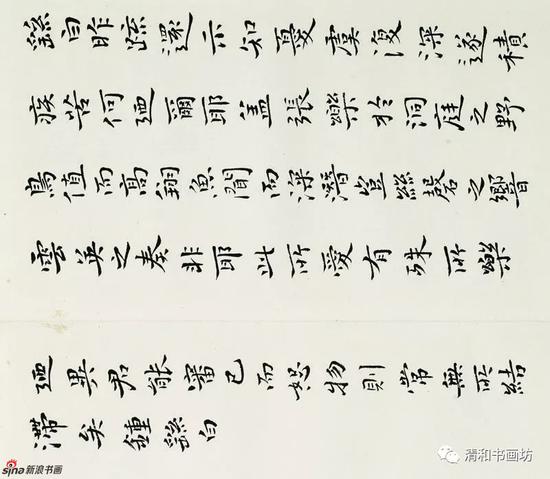 繇白昨疏還示知憂虞復深遂積
疾苦何迺爾耶蓋張樂於洞庭之野
鳥值而高翔魚聞而深潛豈絲磬之響
雲英之奏非耶此所愛有殊所樂
迺異君能審己而恕物則常無所結
滯矣鍾繇白
sina新浪书画
清和书画坊